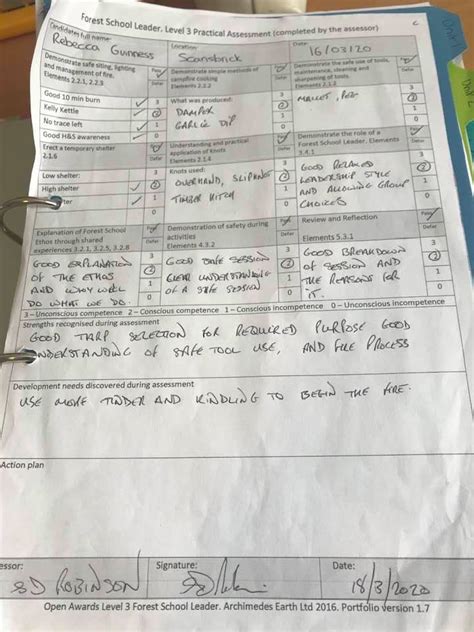 Forest School Leader. Level 3 Practical Assessment (completed by the assessor)
Candidates full name:
Rebecca Gunness
Location:
Scarisbrick
Date:
16/03/20
Demonstrate safe siting, lighting and management of fire.
Elements 2.2.1, 2.2.5
Pass
Defer
Demonstrate simple methods of campfire cooking
Elements 2.1.2
Pass
Defer
Demonstrate the safe use of tools, maintenance, cleaning and sharpening of tools
Elements 2.1.2
Good 10 min burn
3
Kelly Kettle
2
No trace left
1
Good H&S awareness
0
What was produced:
DAMPER
GARLIC DIP
3
2
1
0
MALLET, PEG
Erect a temporary shelter
2.1.6
Pass
Defer
Understanding and practical application of Knots
Elements 2.1.4
Pass
Defer
Demonstrate the role of a Forest School Leader. Elements 5.4.1
Low shelter:
3
High shelter
2
1
0
Knots used:
OVERHAND, SLIPKNOT
TIMBER HITCH
3
2
1
0
GOOD RELAXED
LEADERSHIP STYLE
AND ALLOWING GROUP
CHOICES
Explanation of Forest School Ethos through shared experiences 3.2.1, 3.2.5, 3.2.8
Pass
Defer
Demonstration of safety during activities
Elements 4.3.2
Pass
Defer
Review and Reflection
Elements 5.3.1
Pass
Defer
GOOD EXPLANATION
OF THE ETHOS
AND WHY WE
DO WHAT WE DO.
3
2
1
0
GOOD SAFE SESSION
CLEAR UNDERSTANDING
OF A SAFE SESSION
3
2
1
0
GOOD BREAKDOWN
OF SESSION AND
THE REASONS FOR
IT.
3
2
1
0
3 – Unconscious competence 2 – Conscious competence 1 – Conscious incompetence 0 – Unconscious incompetence
Strengths recognised during assessment
GOOD TARP SELECTION FOR REQUIRED PURPOSE GOOD
UNDERSTANDING OF SAFE TOOL USE, AND FIRE PROCESS
Development needs discovered during assessment
USE MORE TINDER AND KINDLING TO BEGIN THE FIRE.
Action plan
essor:
SD ROBINSON
Signature:
Date:
18/3/2020
Open Awards Level 3 Forest School Leader. Archimedes Earth Ltd 2016. Portfolio version 1.7